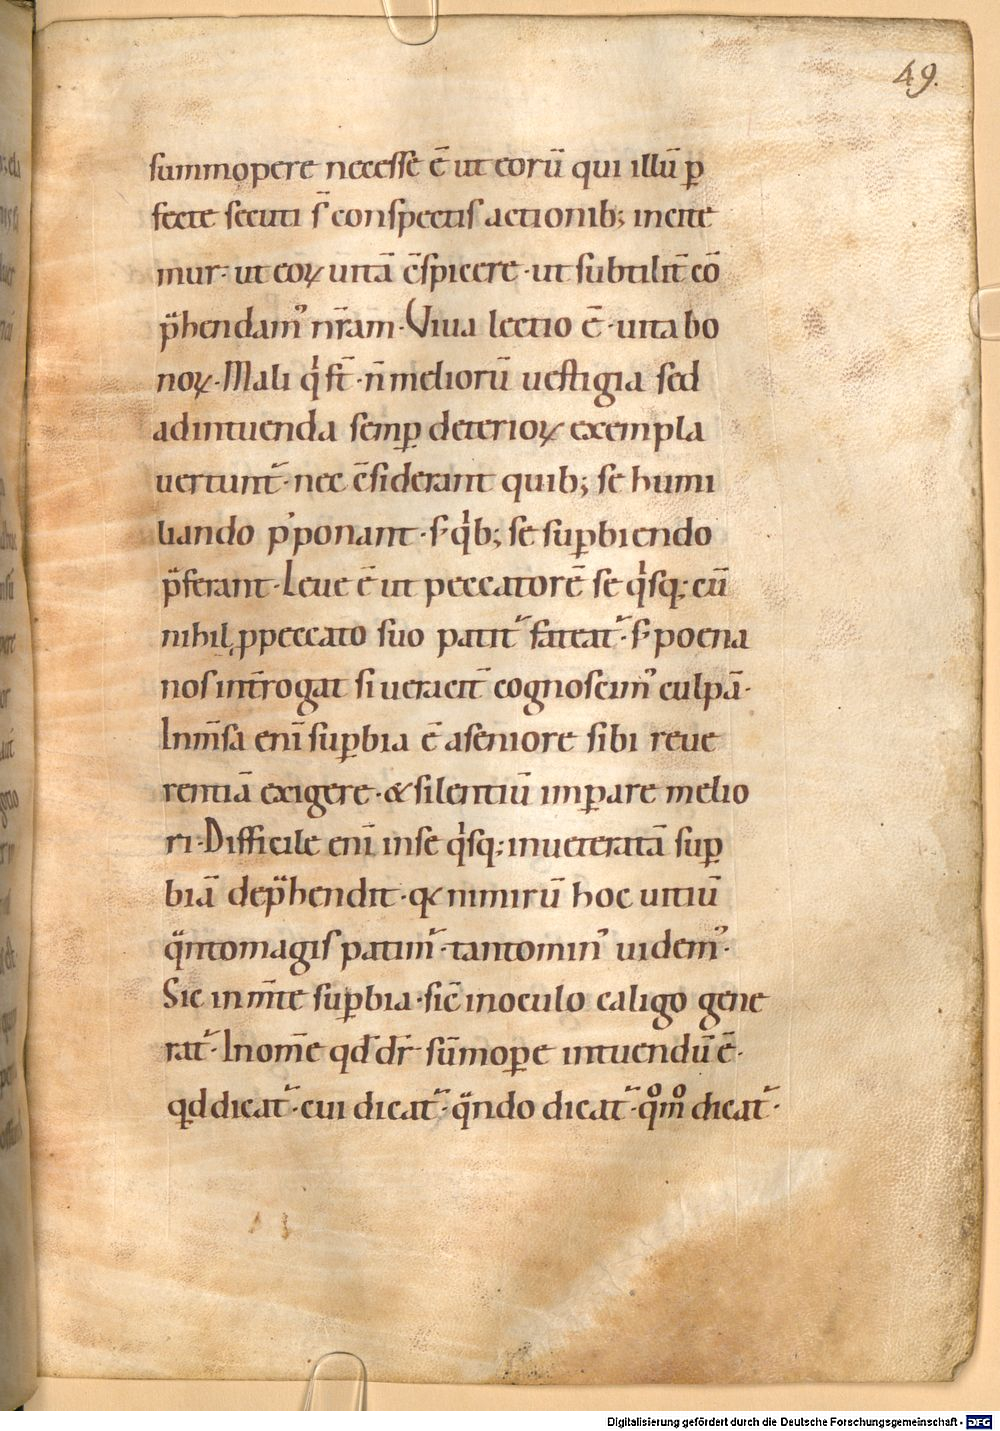 49.
summopere necesse ē ut eorū qui illū ꝑ
fecte secuti s̄ conspectis actionib; incite
mur· ut eoꝝ uitā c̄spicere· ut subtilit̄ cō
p̄hendam᾽ nr̄am· Viua lectio ē· uita bo
noꝝ· Mali qͥ st̄· n̄ meliorū uestigia sed
ad intuenda semꝑ deterioꝝ exempla
uertunt᷑· nec c̄siderant quib; se humi
liando p᾽ponant· s; qͥb; se suꝑbiendo
p̄ferant· Leue ē ut peccatorē se qͥsq; cū
nihil ꝓ peccato suo patit᷑ fateat᷑· s; poena
nos int̄rogat si ueracit̄ cognoscim᾽ culpā·
Inm̄sa eni̅ suꝑbia ē a seniore sibi reue
rentiā exigere· & silentiū imꝑare melio
ri· Difficile eni̅ in se qͥsq; inueteratā suꝑ
biā dep̄hendit· qꝫ nimirū hoc uitiū
qᷓnto magis patim᷑· tanto min᾽ uidem᾽·
Sic in m̄te suꝑbia· sic̄ in oculo caligo gene
rat᷑· In om̄e qđ dr̄ sūmoꝑe intuendū ē·
qđ dicat᷑· cui dicat᷑· qᷓndo dicat᷑· qͦmͦ dicat᷑·
Digitalisierung gefördert durch die Deutsche Forschungsgemeinschaft - DFG